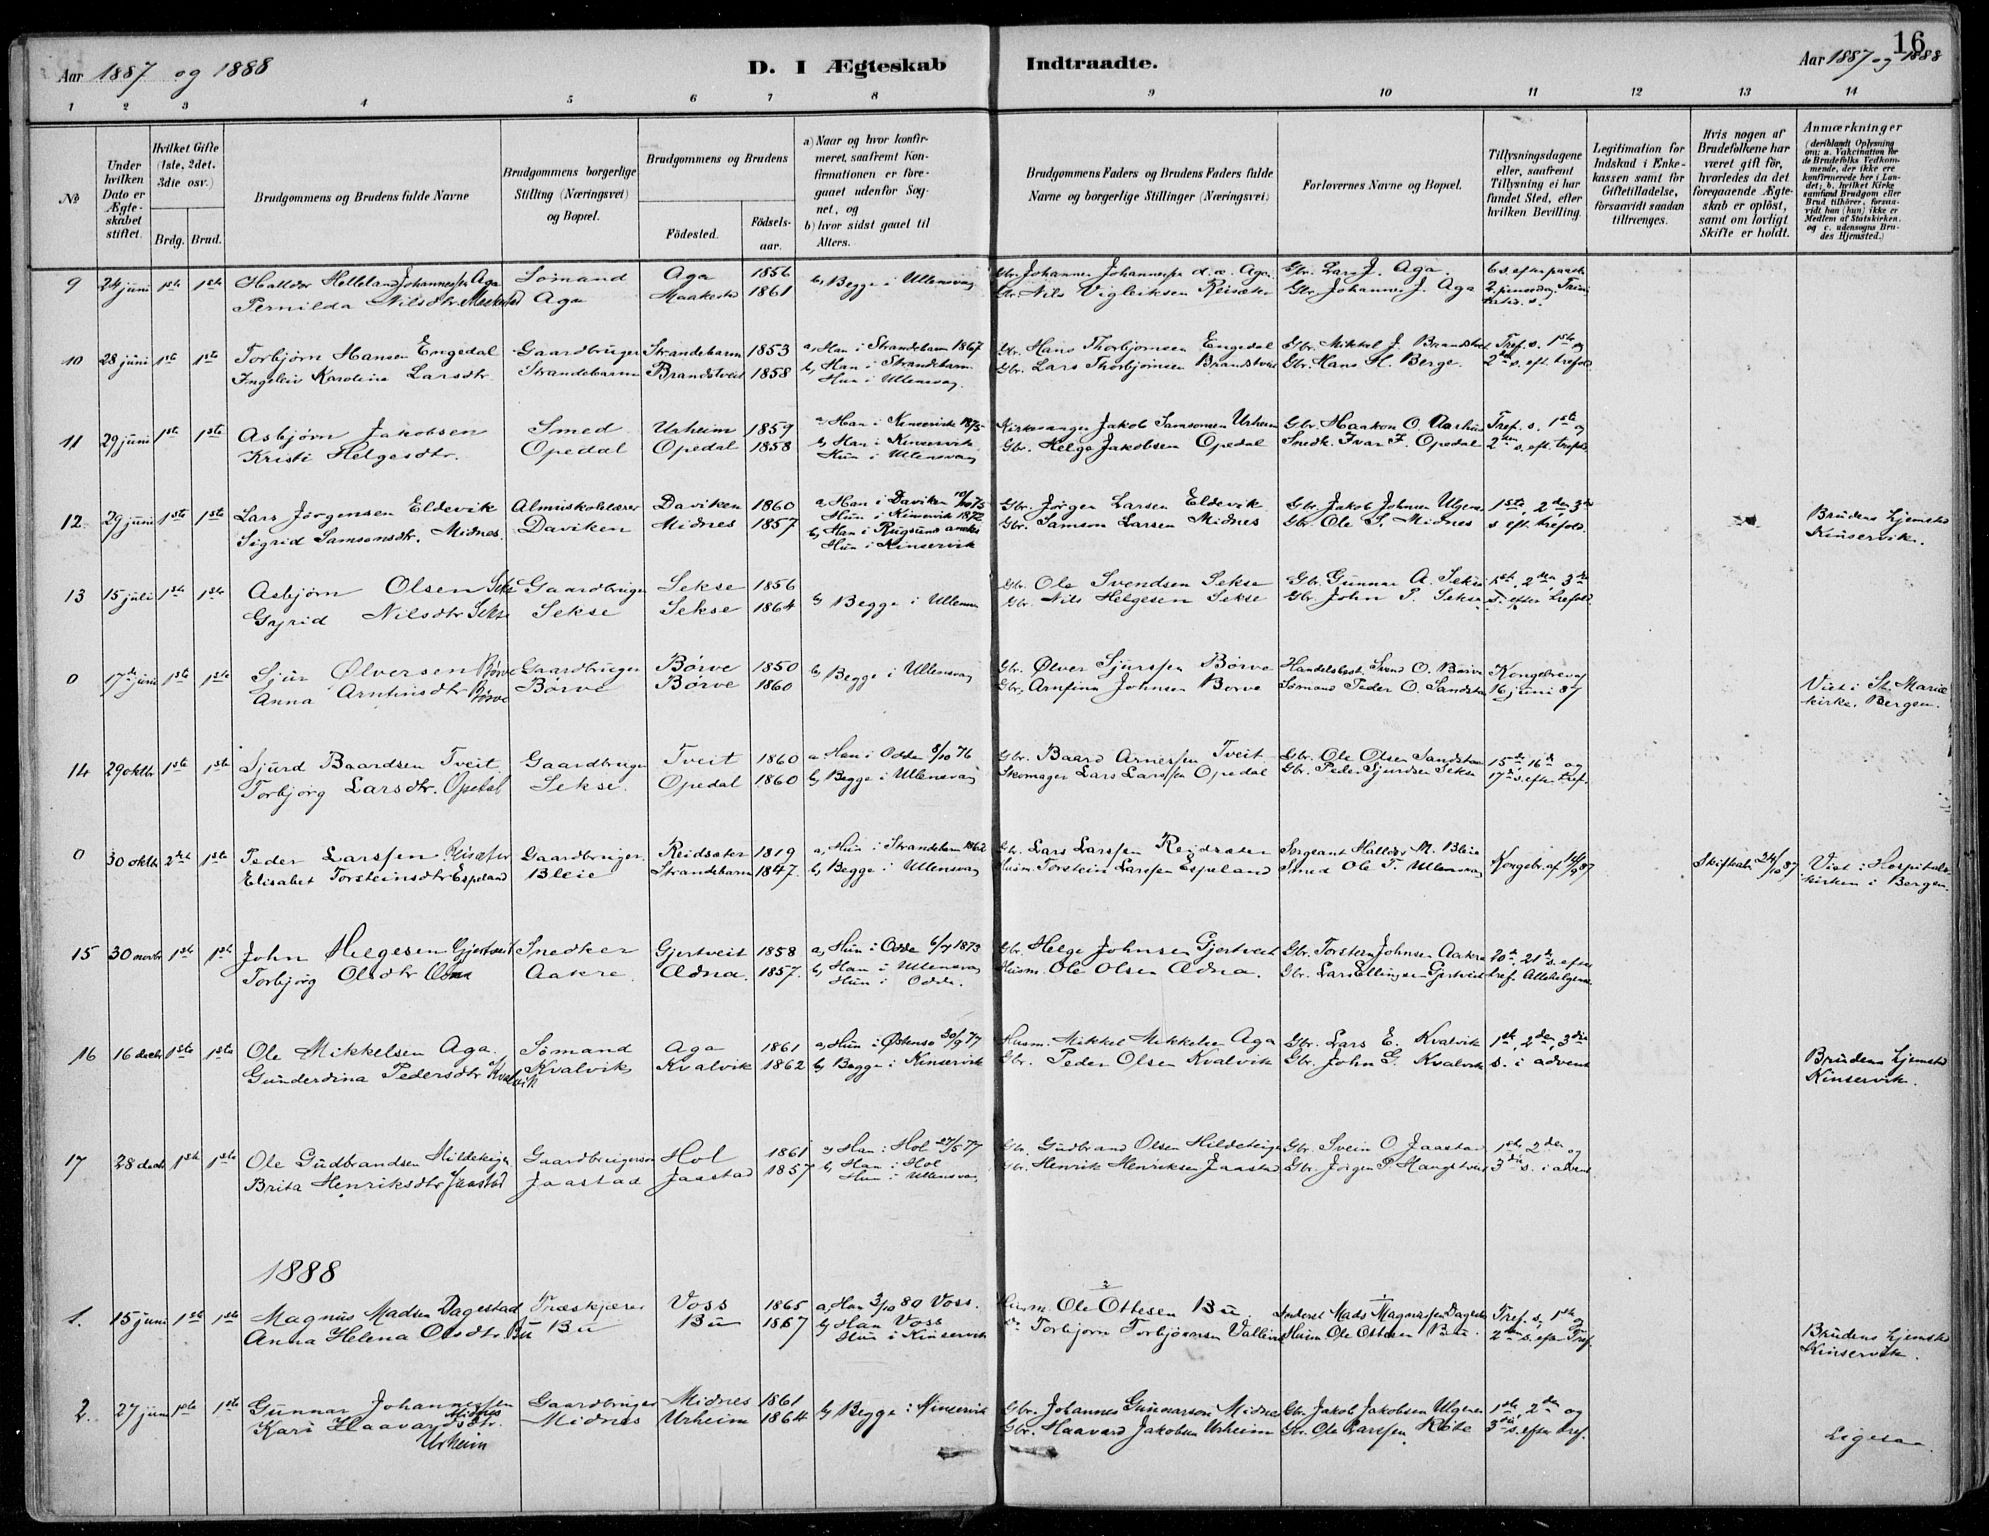 16
Aar 1887 og 1888
D. I Ægteskab Indtraadte.
Aar 1887 og 1888
1 2 3 4 5 6 7 8 9 10 11 12 13 14
№
Under hvilken Dato er Ægteskabet stiftet.
Hvilket Gifte (1ste, 2det, 3die osv.)
Brdg. Brud.
Brudgommens og Brudens fulde Navne
Brudgommens borgerlige Stilling (Næringsvei) og Bopæl.
Brudgommens og Brudens
Fødested. Fødselsaar.
a) Naar og hvor konfirmeret, saafremt Konfirmationen er foregaaet udenfor Sognet, og
b) hvor sidst gaaet til Alters.
Brudgommens Faders og Brudens Faders fulde Navne og borgerlige Stillinger (Næringsvei)
Forlovernes Navne og Bopæl.
Tillysningsdagene eller, saafremt Tillysning ei har fundet Sted, efter hvilken Bevilling.
Legitimation for Indskud i Enkekassen samt for Giftetilladelse, forsaavidt saadan tiltrænges.
Hvis nogen af Brudefolkene har været gift før, hvorledes da det foregaaende Ægteskab er opløst, samt om lovligt Skifte er holdt.
Anmærkninger
(deriblandt Oplysning om: a. Vakcination for de Brudefolks Vedkommende, der ikke ere konfirmerede her i Landet; b. hvilket Kirkesamfund Brudgom eller Brud tilhører, forsaavidt han (hun) ikke er Medlem af Statskirken, og c. udensogns Brudes Hjemsted.)
9 24 juni 1ste 1ste Halldor Helleland Johannessen Aga Sømand Aga 1856 b, Begge i Ullensvang Gbr. Johannes Johannessen d.æ. Aga Gbr. Lars J. Aga. 6 s. efter paaske
Pernilda Nilsdtr. Maakestad Aga Maakestad 1861 Gbr. Nils Vigleiksen Reisæter Gbr. Johannes J. Aga 2. pinsedag, Trinitatis s.
10 28 juni 1ste 1ste Torbjørn Hansen Engedal Gaardbruger Strandebarm 1853 a, Han i Strandebarm 1867 Gbr. Hans Thorbjørnsen Engedal Gbr. Mikkel J. Brandstveit Tref. s. 1ste og
Ingeleiv Karolina Larsdtr. Strandebarm Brandstveit 1858 b, Han i Strandebarm. Gbr. Lars Thorbjørnsen Brandstveit Gbr. Hans H. Berge. 2den s. eft. trefold.
Hun i Ullensvang.
11 29 juni 1ste 1ste Asbjørn Jakobsen Smed Urheim 1859 a Han i Kinservik 1875 Kirkesanger Jakob Samsonsen Urheim Gbr. Haakon O. Aarhus Tref. s. 1ste og
Kristi Helgesdtr. Opedal Opedal 1858 b, Han i Kinservik Gbr. Helge Jakobsen Opedal Snedk. Ivar I. Opedal 2den s. eft. trefold.
Hun i Ullensvang
12. 29 juni 1ste 1ste Lars Jørgensen Eldevik Almueskolelærer Daviken 1860 a Han i Daviken 10/10 75 Gbr. Jørgen Larsen Eldevik Gbr. Jakob Johnsen Ulgenes 1ste, 2den, 3die
Sigrid Samsonsdtr. Midnes. Daviken Midnes 1857 Hun i Kinservik 1872 Gbr. Samson Larsen Midnes Gbr. Ole S. Midnes s. eft. trefold.
b, Han i Rugsund annex
Hun i Kinservik
Brudens hjemsted Kinservik.
13 15 juli 1ste 1ste Asbjørn Olsen Sekse Gaardbruger Sekse 1856 b, Begge i Ullensvang Gbr. Ole Svendsen Sekse Gbr. Gunnar A. Sekse 1ste, 2den, 3die
Gyrid Nilsdtr Sekse Sekse Sekse 1864 Gbr. Nils Helgesen Sekse Gbr. John P. Sekse s. efter trefold.
0 17de juni 1ste 1ste Sjur Ølversen Børve Gaardbruger Børve 1850 b, Begge i Ullensvang Gbr. Ølver Sjurssen Børve Handelsbest. Svend O. Børve Kongebrev af
Anna Arnfinsdtr Børve Børve Børve 1860 Gbr. Arnfinn Johnsen Børve Sømand Peder O. Sandstø 16 juni 87
Viet i St. Mariæ kirke, Bergen.
14 29 oktbr 1ste 1ste Sjurd Baardsen Tveit Gaardbruger Tveit 1860 a Han i Odda 8/10 76 Gbr. Baard Arnessen Tveit Gbr. Ole Olsen Sandstø 15de 16de og
Torbjørg Larsdtr. Opedal Sekse. Opedal 1860 b, Begge i Ullensvang Skomager Lars Larssen Opedal Gbr. Peder Sjurdsen Sekse 17de s. efter tref.
0 30 oktbr 2det 1ste Peder Larssen Reisæter Gaardbruger Reidsæter 1819 a, Hun i Strandebarm 1862 Gbr. Lars Larssen Reidsæter Sergeant Halldor M. Bleie Kongebr. af 16/9 87 Skiftebr. 24/10 87 Viet i Hospitalskirken i Bergen.
Elisabet Torsteinsdtr Espeland Bleie Strandebarm 1847. b, Begge i Ullensvang Husm. Torstein Larssen Espeland Smed Ole T. Ullensvang
15 30 novbr 1ste 1ste John Helgesen Gjertveit Snedker Gjertveit 1858 a, Hun i Odda 6/7 1873 Gbr. Helge Johnsen Gjertveit Gbr. Torstein Johnsen Aakre 20de, 21de s. efter
Torbjørg Olsdtr Ædna Aakre. Ædna. 1857. b, Han i Ullensvang Husm. Ole Olsen Ædna. Gbr. Lars Ellingsen Gjertveit tref. Allehelgens
Hun i Odda.
16 16 decbr 1ste 1ste Ole Mikkelsen Aga. Sømand Aga 1861 a, Hun i Østensø 30/9 77 Husm. Mikkel Mikkelsen Aga Gbr. Lars E. Kvalvik 1ste, 2den, 3die
Gunderdina Pedersdtr Kvalvik Kvalvik Kvalvik 1862 b, Begge i Kinservik Gbr. Peder Olsen Kvalvik Gbr. John G. Kvalvik s. i advent
Brudens hjemsted Kinservik.
17 28 decbr 1ste 1ste Ole Gudbrandsen Hildeteigen Gaardbrugersøn Hol 1861 a, Han i Hol 27/5 77 Gbr. Gudbrand Olsen Hildeteigen Gbr. Svein O. Jaastad 1ste 2den og
Brita Henriksdtr Jaastad Jaastad Jaastad 1857 b, Han i Hol Gbr. Henrik Henriksen Jaastad Gbr. Jørgen P. Haugstveit 3die s. i advent
Hun i Ullensvang
1888
1. 15 juni 1ste 1ste Magnus Madsen Dagestad Træskjærer Voss 1865 a, Han 3/10 80 Voss. Husm. Ole Ottesen Bu. Inderst Mads Magnussen Dagestad Tref. s. 1ste og
Anna Helena Olsdtr. Bu Bu Bu 1867 b, Han Voss Torbjørn Torbjørnsen Husm. Ole Ottesen Bu. 2den s. efter Tref.
Hun i Kinservik
Brudens hjemsted Kinservik.
2. 27 juni 1ste 1ste Gunnar Johannessen Midnes Gaardbruger Midnes 1861 b, Begge i Kinservik Gbr. Johannes Gunnarson Midnes Gbr. Jakob Jakobsen Ulgenes 1ste, 2den og
Kari Haavardsdtr. Urheim Midnes Urheim 1864 Gbr. Haavard Jakobsen Urheim Gbr. Ole Larssen Rõte 3die s. efter tref.
Ligesaa.